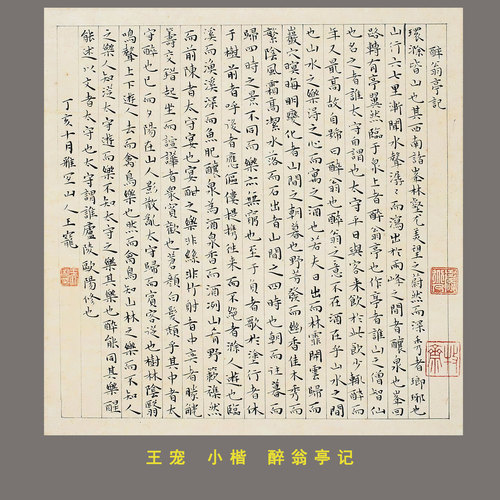 醉翁亭記
環滁皆山也其西南諸峯林壑尤美望之蔚然而深秀者瑯琊也
山行六七里漸聞水聲潺〻而瀉出於兩峰之間者釀泉也峯回
路轉有亭翼然臨于泉上者醉翁亭也作亭者誰山之僧智仙
也名之者誰太守自謂也太守與客來飲於此飲少輒醉而
年又最高故自號曰醉翁也醉翁之意不在酒在乎山水之間
也山水之樂得之心而寓之酒也若夫日出而林霏開雲歸而
巖穴暝晦明變化者山間之朝暮也野芳發而幽香佳木秀而
繁陰風霜高潔水落而石出者山間之四時也朝而往暮而
歸四時之景不同而樂亦無窮也至于負者歌於塗行者休
于樹前者呼後者應傴僂提攜往來而不絕者滁人遊也臨
溪而漁溪深而魚肥釀泉為酒泉香而酒洌山肴野蔌雜然
而前陳者太守宴也宴酣之樂非絲非竹射者中奕者勝觥
籌交錯起坐而諠譁者衆賓歡也蒼顏白髮頹乎其中者太
守醉也已而夕陽在山人影散亂太守歸而賓客從也樹林陰翳
鳴聲上下遊人去而禽鳥樂也然而禽鳥知山林之樂而不知人
之樂人知從太守遊而樂不知太守之樂其樂也醉能同其樂醒
能述以文者太守也太守謂誰廬陵歐陽修也
丁亥十月雅宜山人王寵
王宠 小楷 醉翁亭记